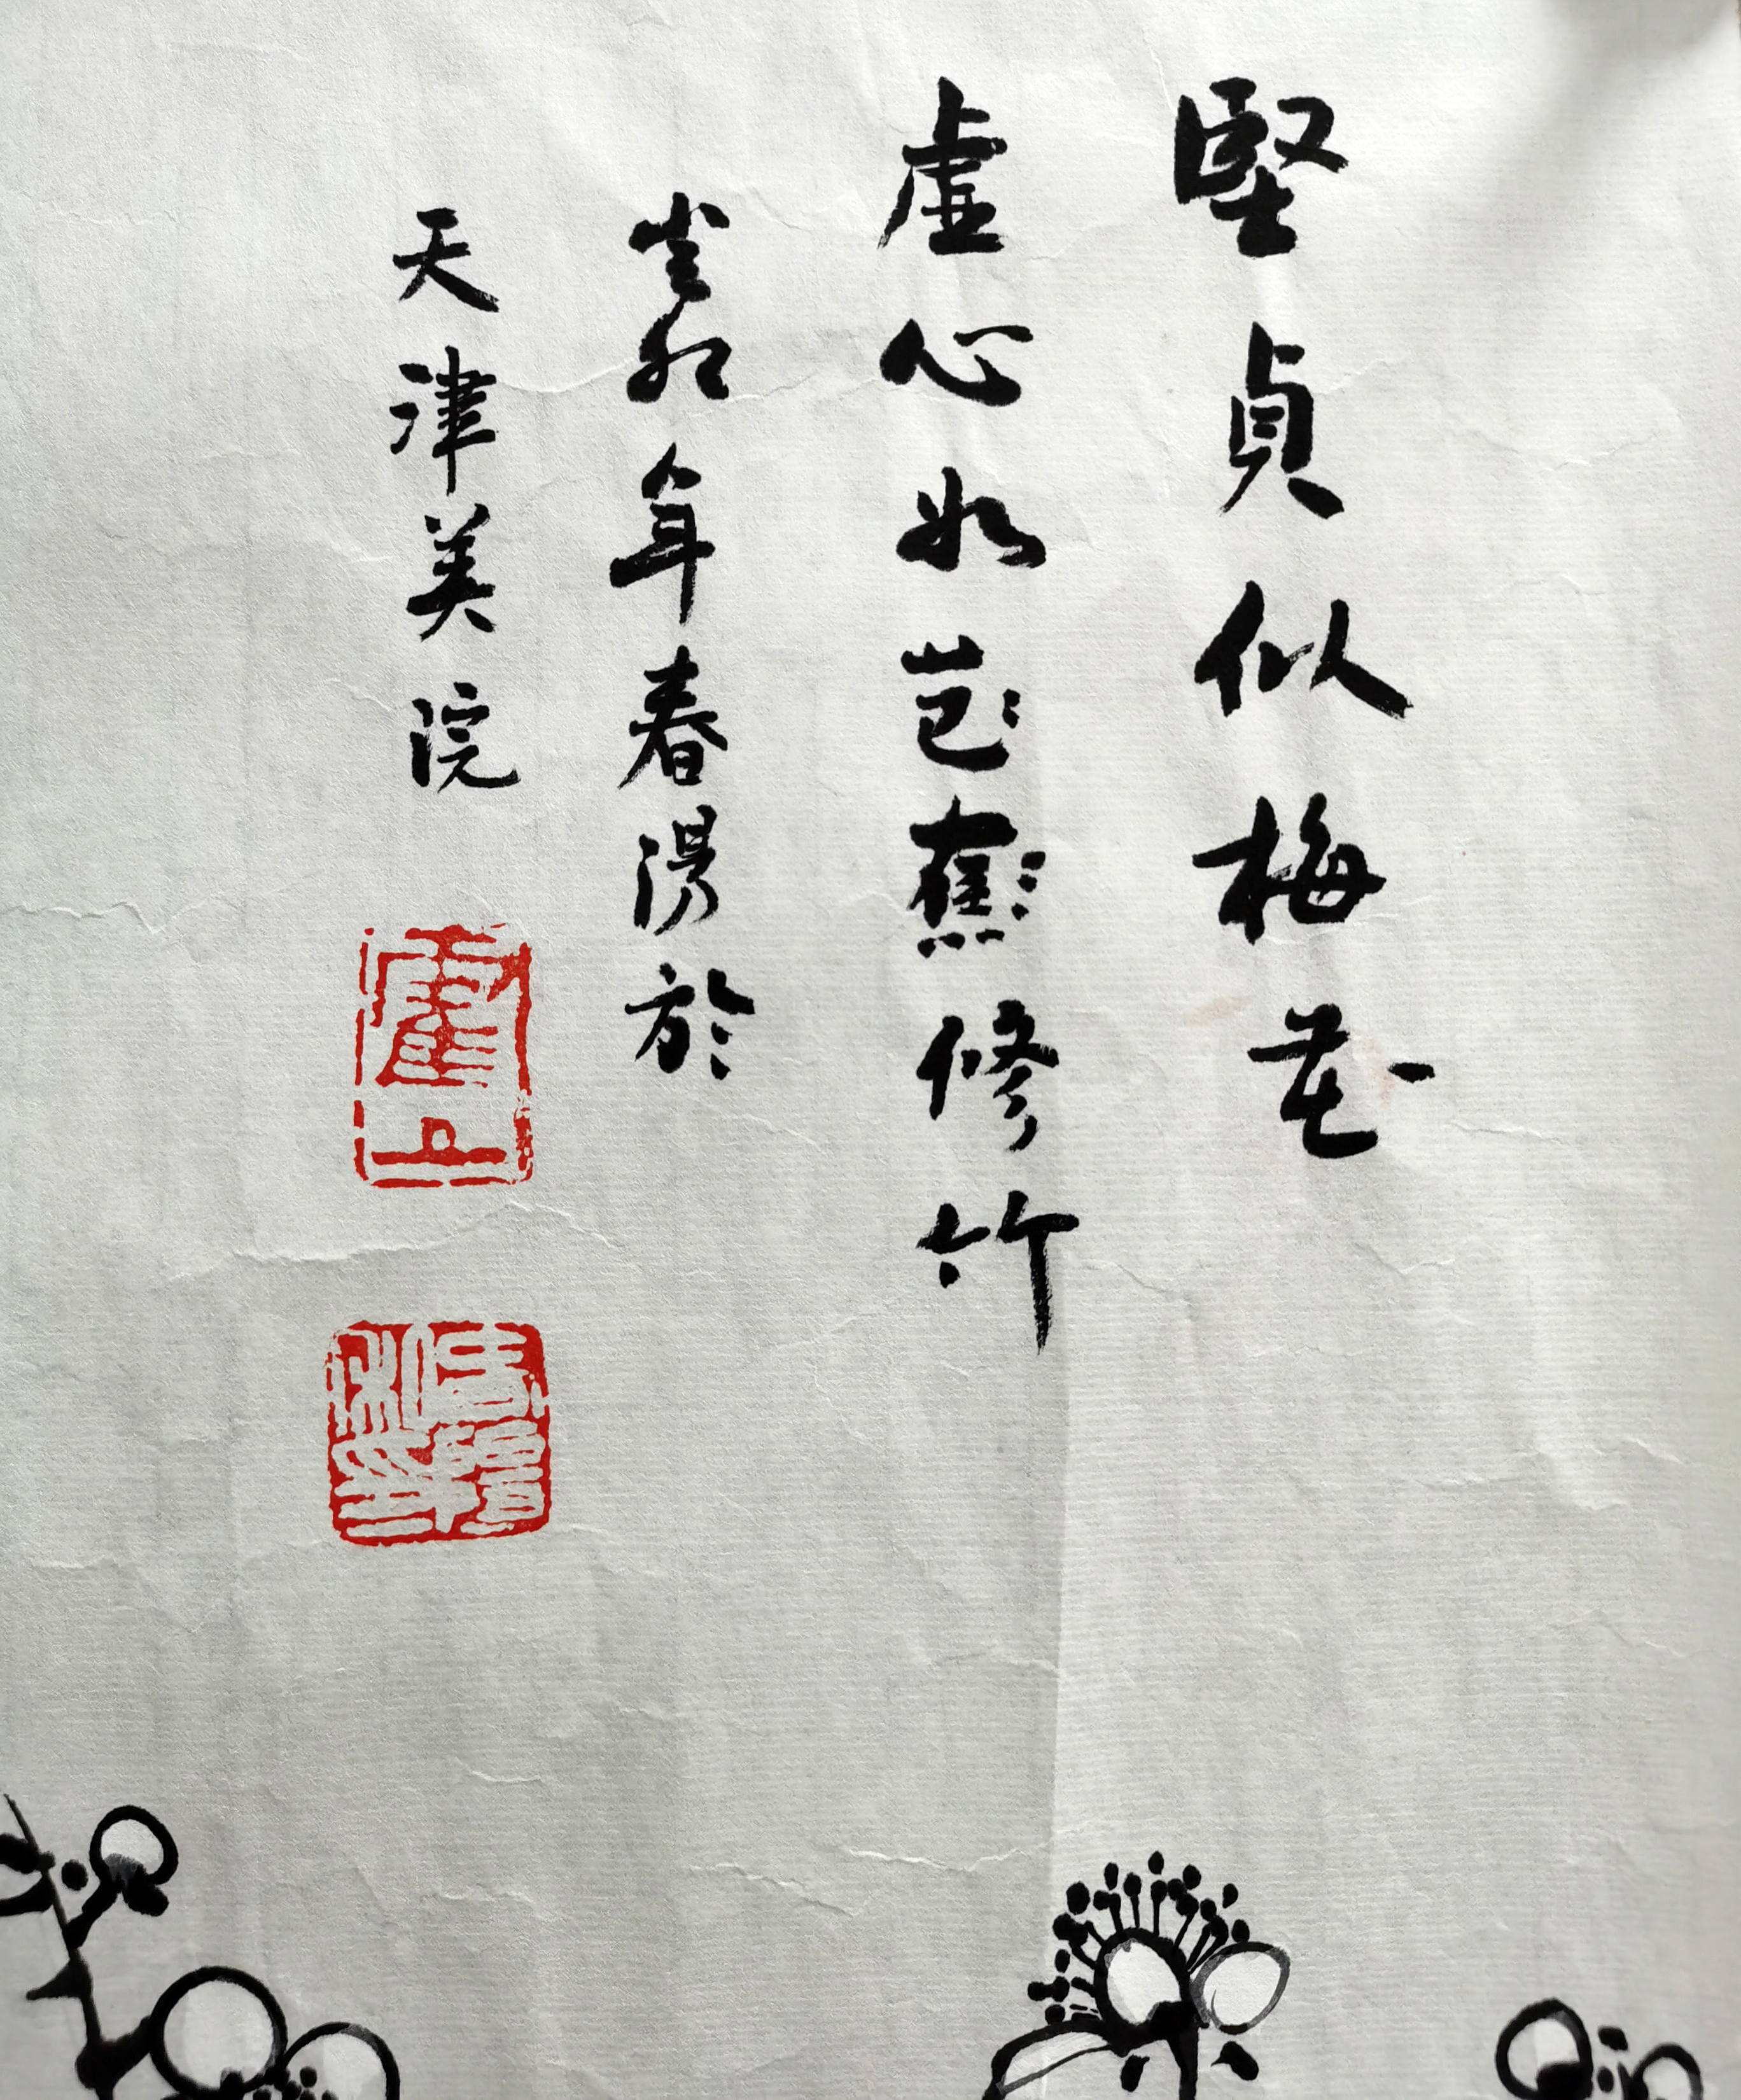 堅貞似梅花
虛心如芭蕉修竹
癸卯年春陽於
天津美院